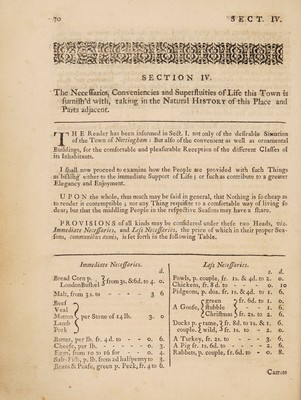 70
SECT. IV.
SECTION IV.
The Necessaries, Conveniencies and Superfluities of Life this Town is
furnish'd with, taking in the Natural HISTORY of this Place and
Parts adjacent.
THE Reader has been informed in Sect. I. not only of the desirable Situation
of the Town of Nottingham: But also of the convenient as well as ornamental
Buildings, for the comfortable and pleasurable Reception of the different Classes of
its Inhabitants.
I shall now proceed to examine how the People are provided with such Things
as belong either to the immediate Support of Life; or such as contribute to a greater
Elegancy and Enjoyment.
UPON the whole, thus much may be said in general, that Nothing is so cheap as
to render it contemptible; nor any Thing requisite to a comfortable way of living so
dear; but that the middling People in the respective Seasons may have a share.
PROVISIONS of all kinds may be considered under these two Heads, viz.
Immediate Necessaries, and Less Necessaries, the price of which in their proper Sea-
sons, communibus annis, is set forth in the following Table.
Immediate Necessaries.
d.
Bread Corn p. London Bushel } from 3s. &6d. to 4. 0.
Malt, from 3s. to - - - 3 6
Beef
Veal
Mutton } per Stone of 14 lb. 3. 0
Lamb
Pork
Butter, per lb. fr. 4d. to - - 0. 6.
Cheese, per lb. - - - 0. 3.
Eggs, from 10 to 16 for - - 0. 4.
Salt-Fish, p. lb. from 2d halfpenny to 3.
Beans & Pease, green p. Peck, fr. 4 to 6.
Less Necessaries.
s. d.
Fowls, p. couple, fr. 1s. & 4d. to 2. 0.
Chickens, fr. 8d. to - - 0. 10
Pidgeons, p. dox. fr. 1s. &4d to 1. 6.
A Goose, { green fr. 6d. to 1. 0.
Stubble - - 1. 6.
Christmas fr. 2s. to 2. 6.
Ducks p. couple. { tame, fr. 8d. to 1s. & 1. 6.
wild, fr. 1s. to - 2. 0.
A Turkey, fr. 2s. to - - 3. 6.
A Pig fr. 1s. 6d. to - - 2. 6.
Rabbets, p. couple, fr. 6d. to - 0. 8.
Carrots